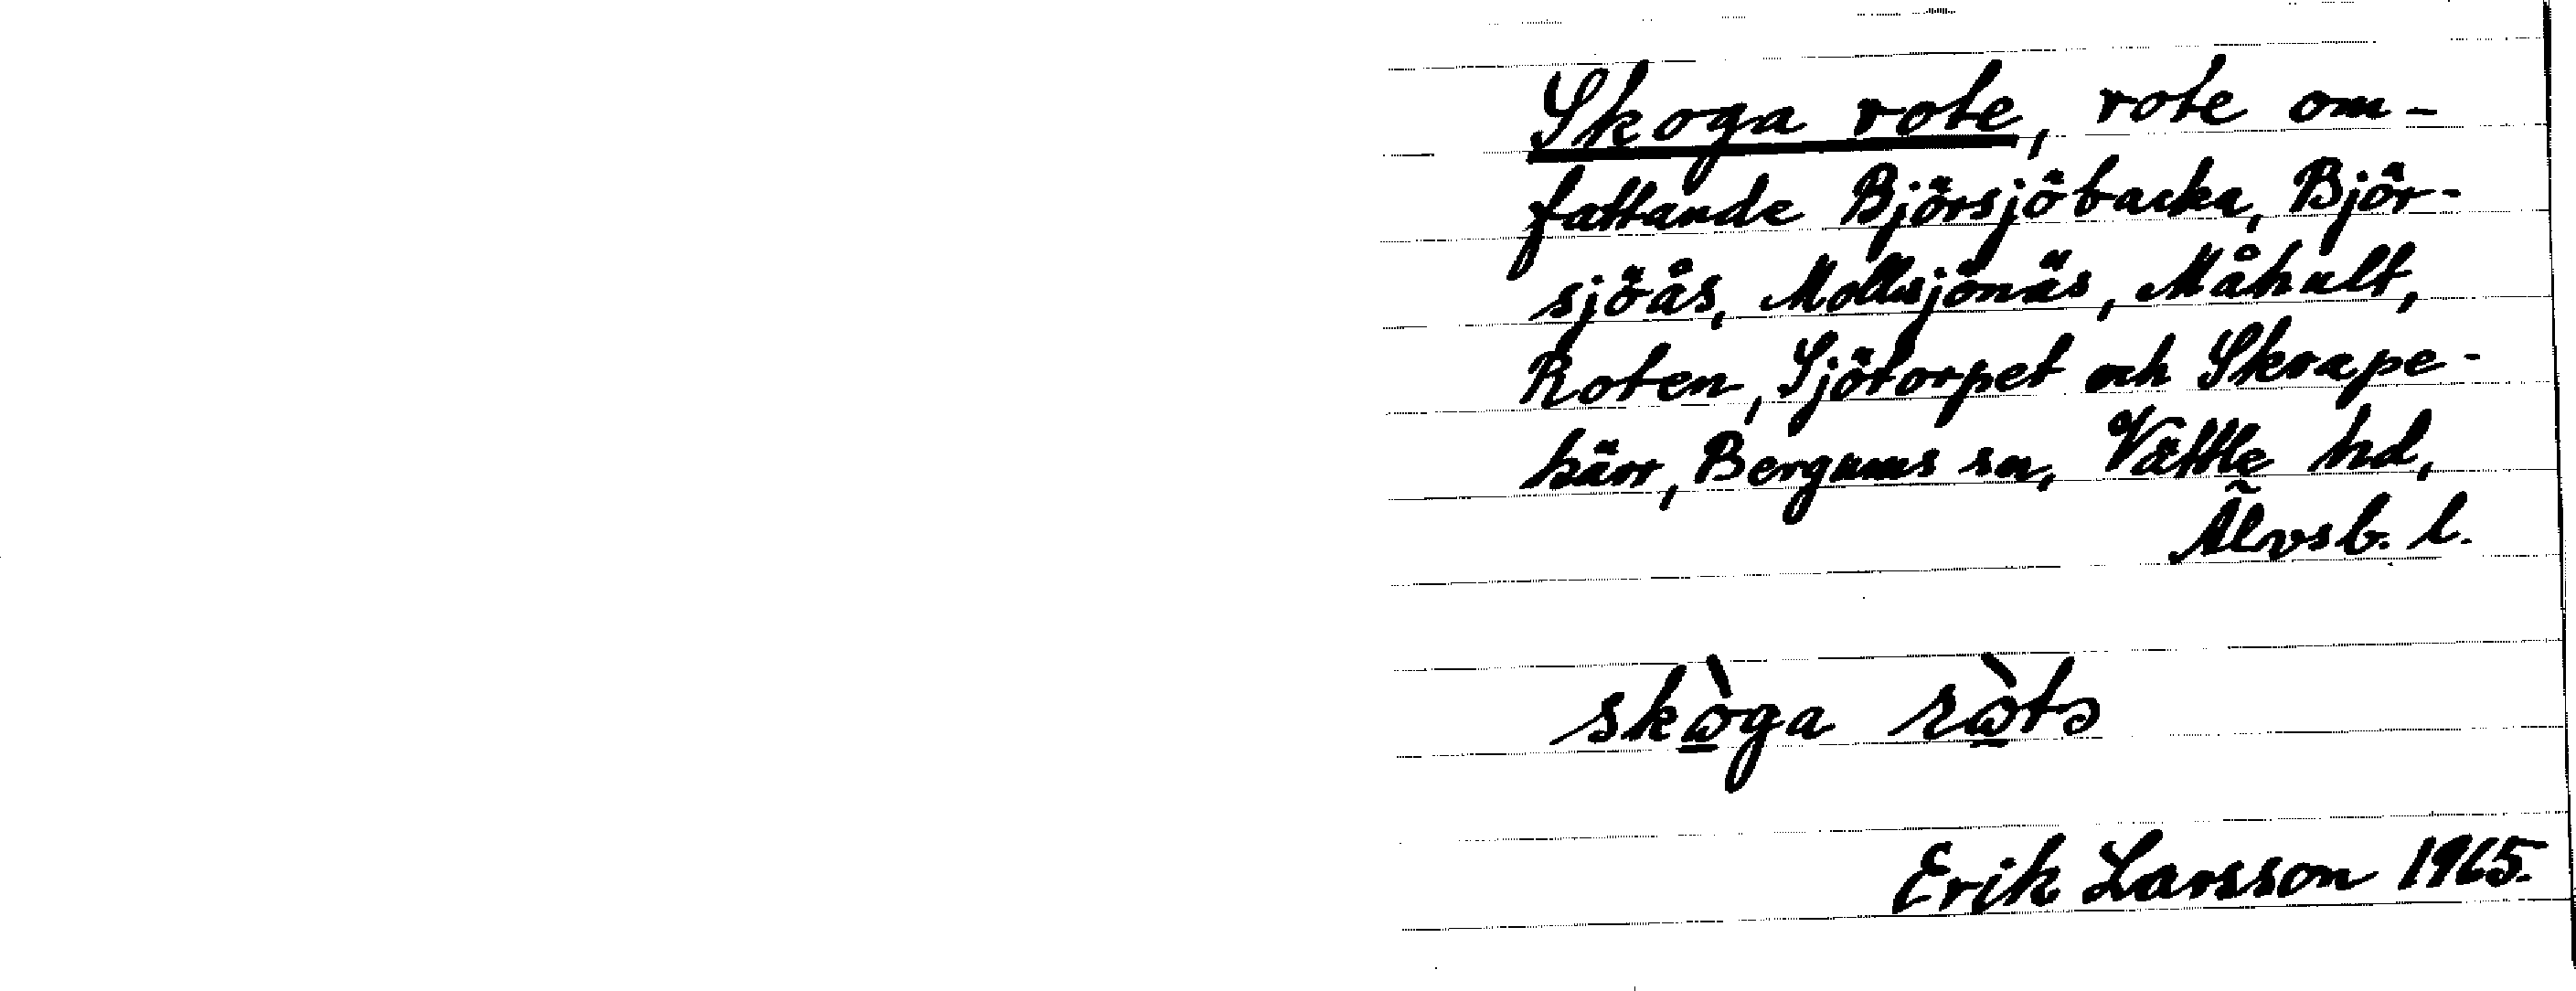 Skoga rote, rote om-
fattande Björsjöbacka, Björ-
sjöås, Mollsjönäs, Måhult,
Roten, Sjötorpet och Skrape-
härr, Bergums sn, Vättle hd,
Älvsb. l.
skòga ròtə
Erik Larsson 1965.